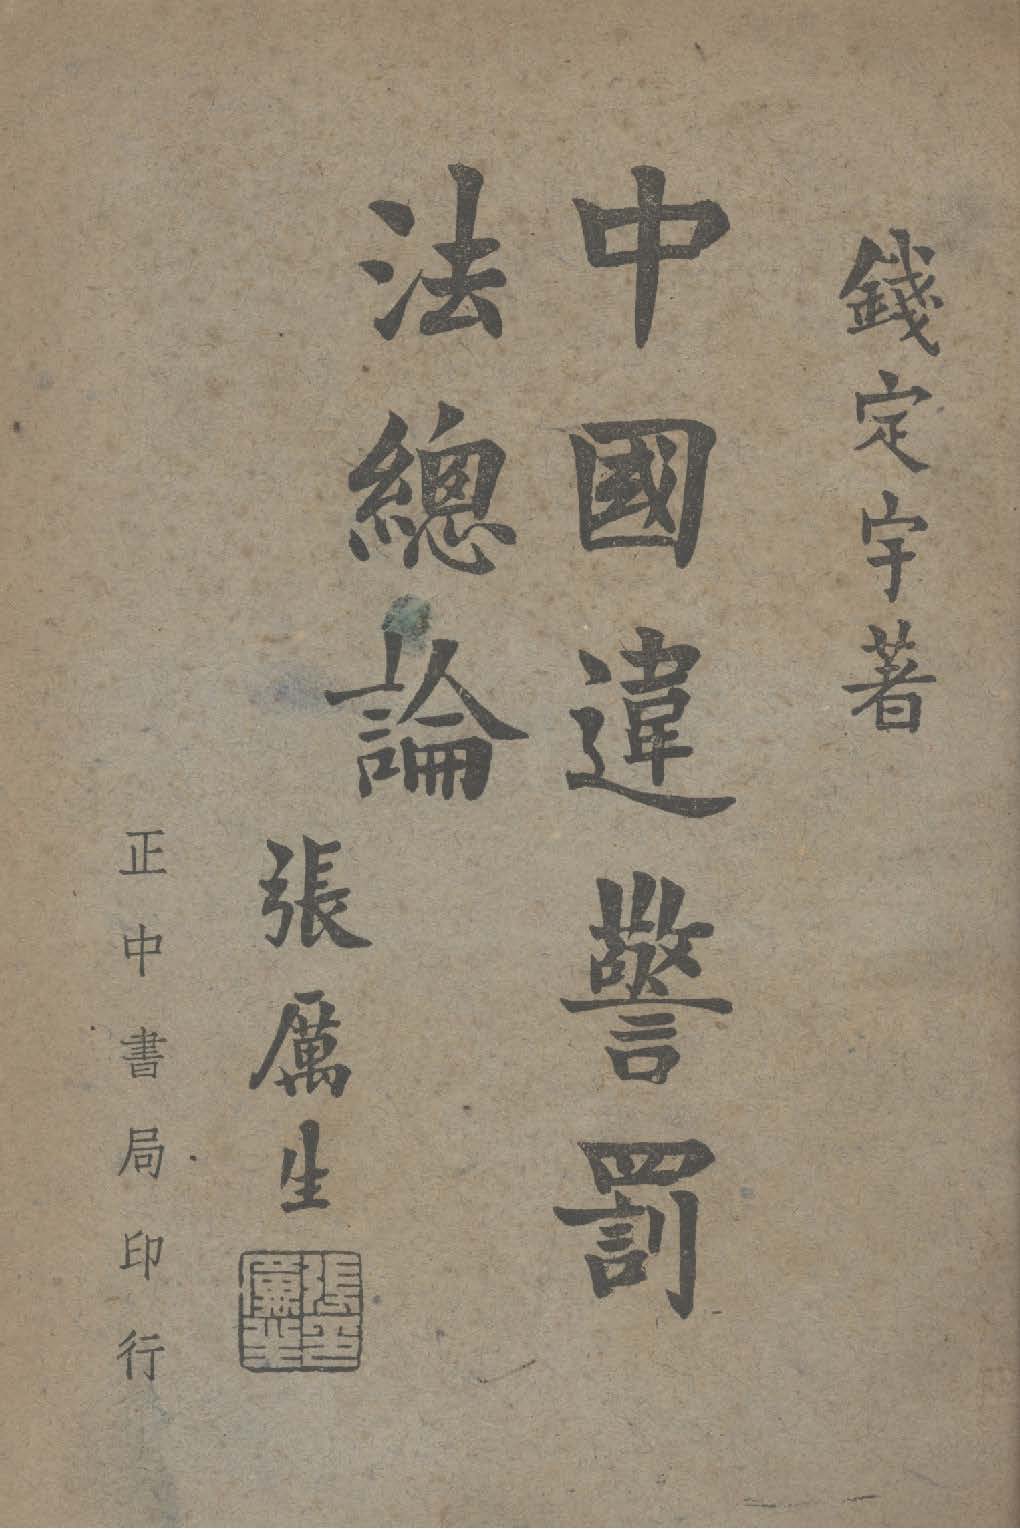 錢定宇著
中國違警罰
法總論
張厲生
正中書局印行